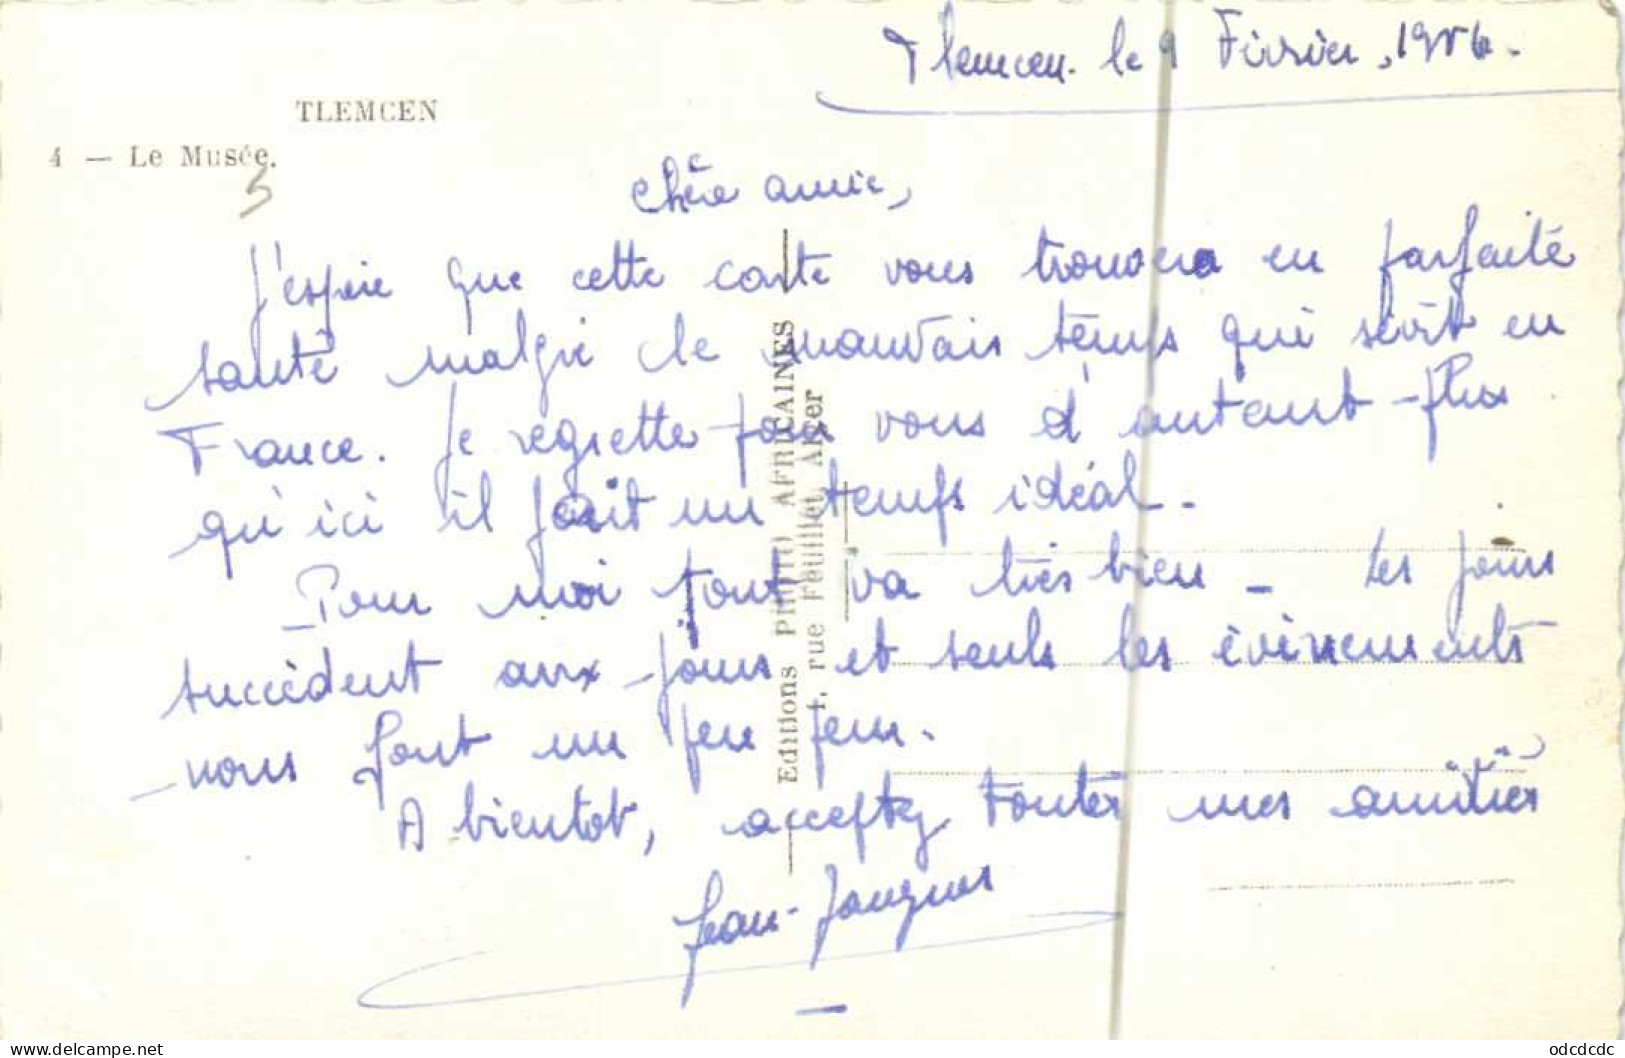 Tlemcen. le 9 Février, 1956.
TLEMCEN
4 — Le Musée.
chère amie,
J'espère que cette carte vous trouvera en parfaite
santé malgré le mauvais temps qui sévit en
France. Je regrette pour vous d'autant plus
qu'ici il fait un temps idéal.
Pour moi tout va très bien - Les jours
succèdent aux jours et seuls les évènements
nous font un peu peur.
A bientôt, acceptez toutes mes amitiés
Jean-Jacques
Editions PHOTO AFRICAINES
1, rue Feuillet, Alger
odcdcdc